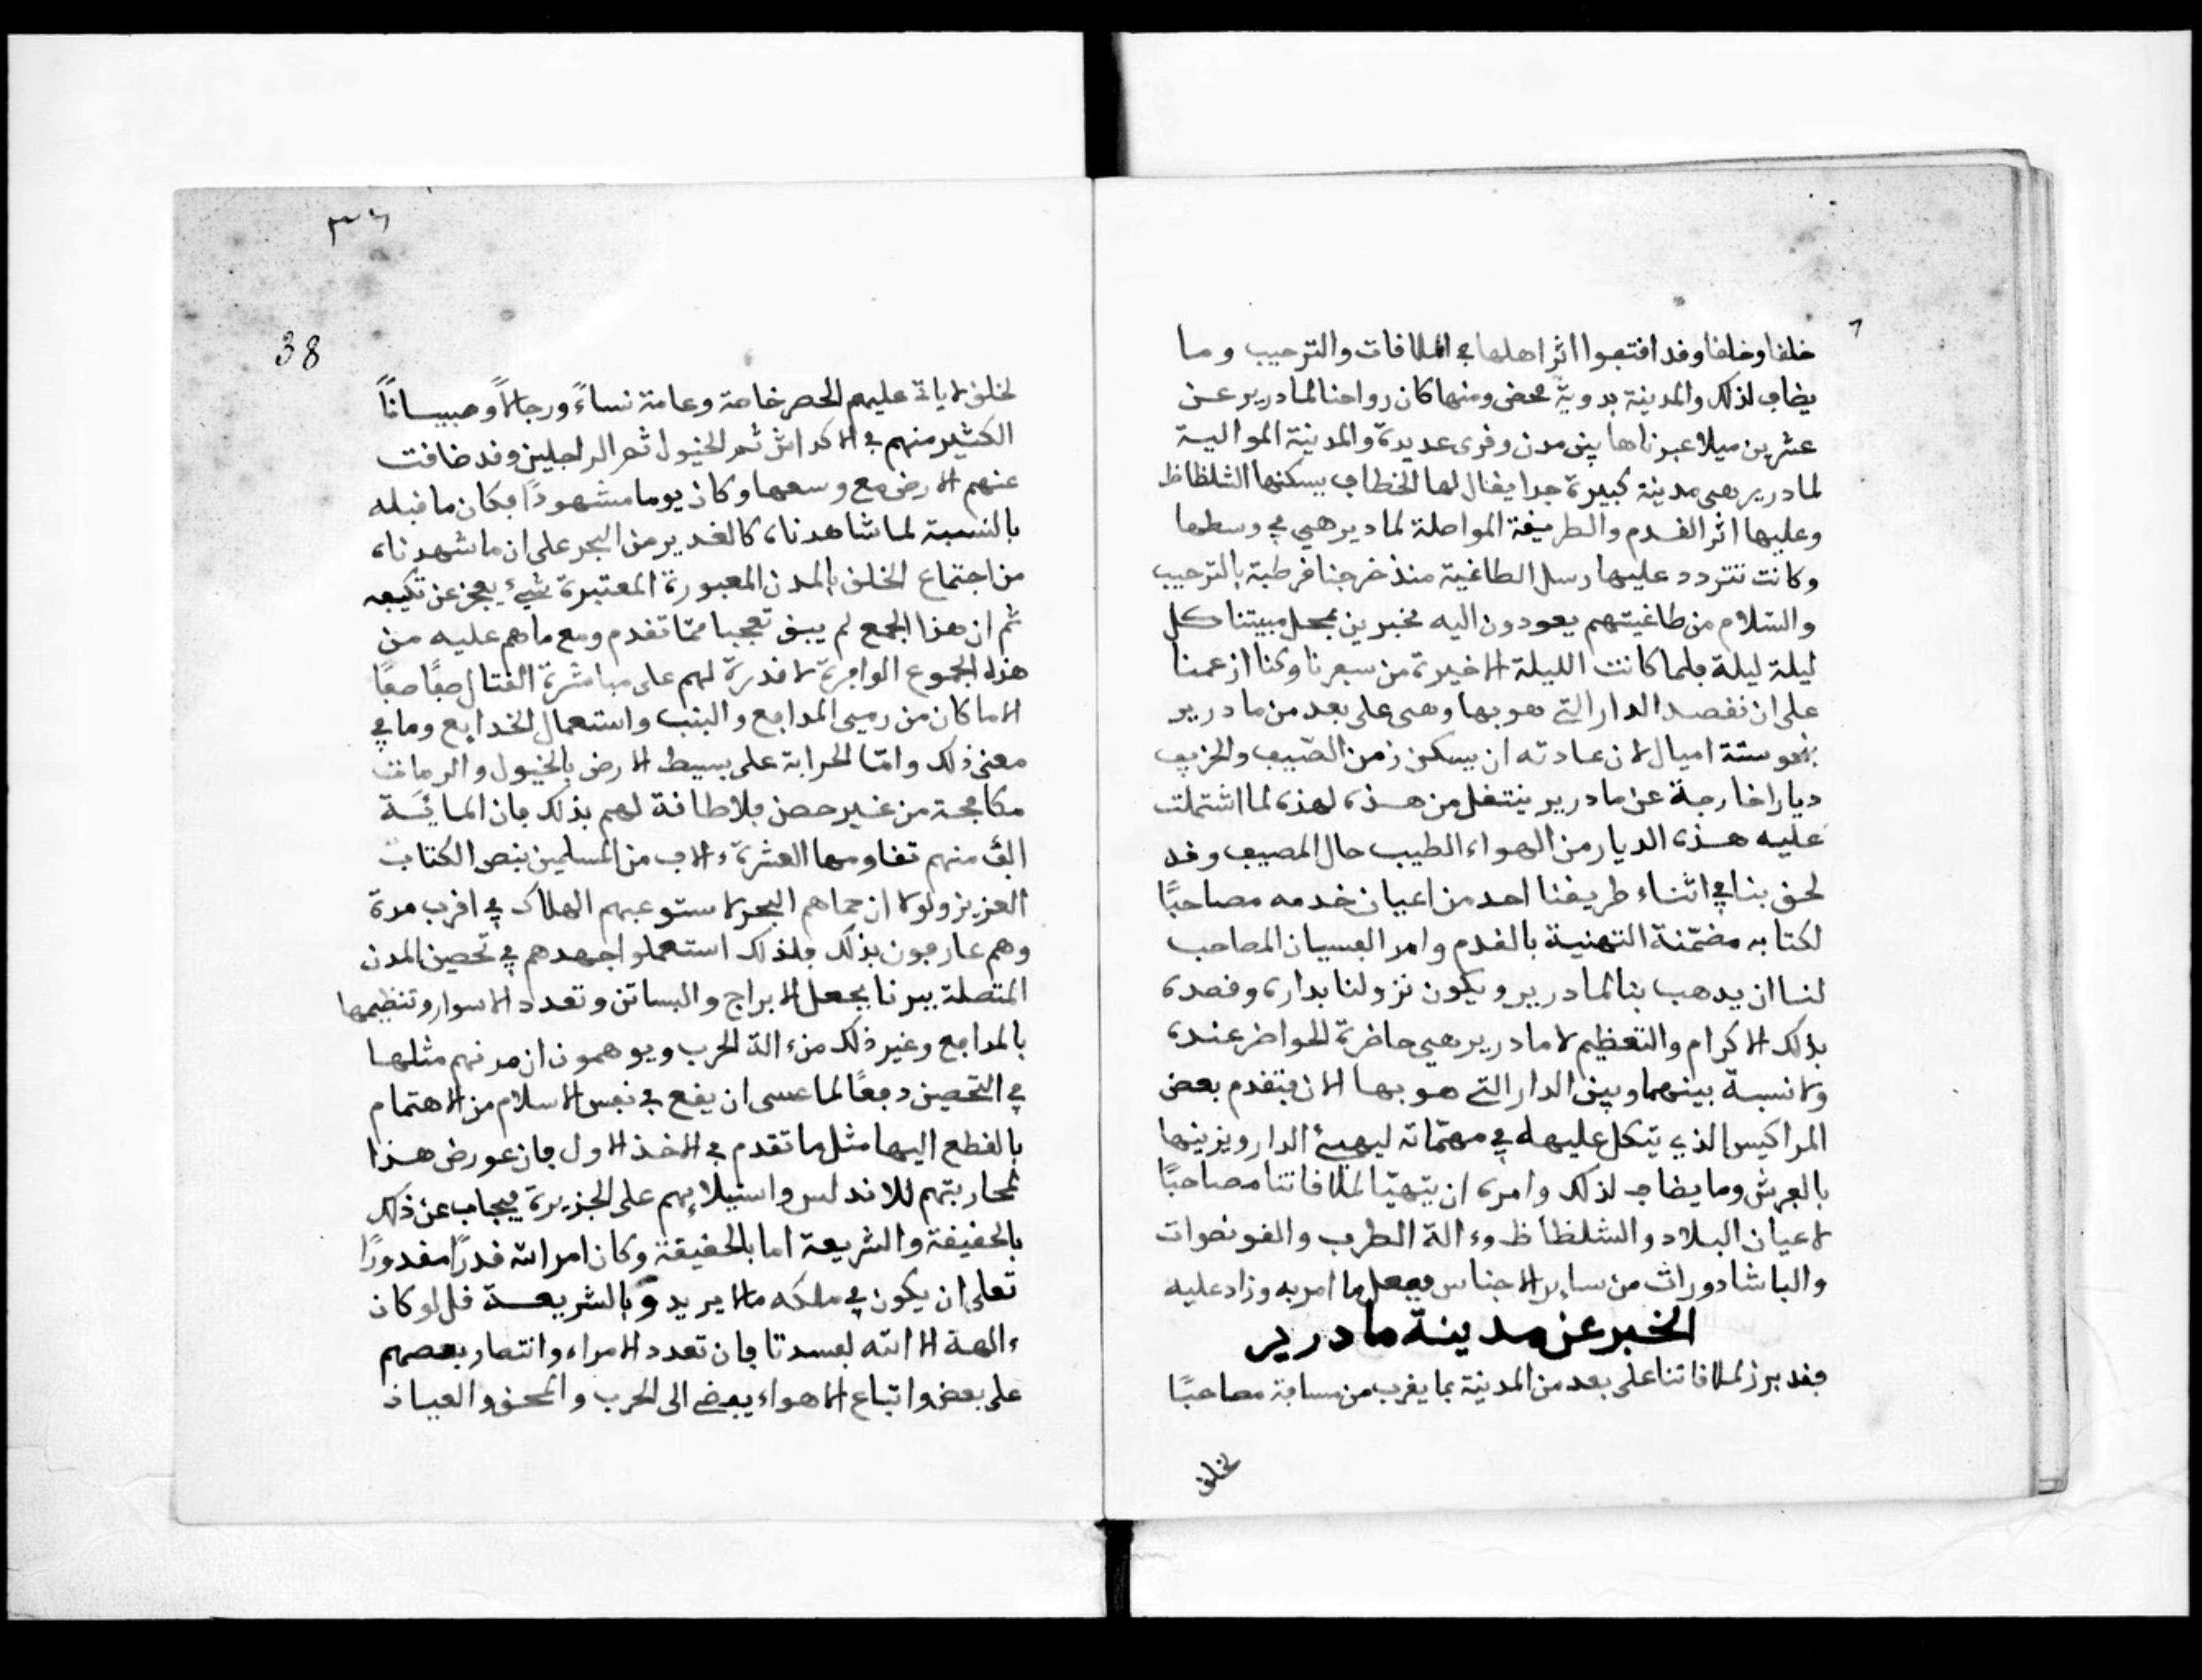 خلفا وخلفا وقد اقتفوا اثر اهلها في الملاقات والترحيب وما
يضاف لذلك والمدينة بدوية محض ومنها كان رواحنا لمادرير عن
عشرين ميلا عبرناها بين مدن وقرى عديدة والمدينة الموالية
لمادرير هي مدينة كبيرة جدا يقال لها الخطاف يسكنها الشلظاظ
وعليها اثر القدم والطريقة المواصلة لمادير هي في وسطها
وكانت تتردد عليها رسل الطاغية منذ خرجنا قرطبة بالترحيب
والسلام من طاغيتهم يعودون اليه مخبرين بمحل مبيتنا كل
ليلة ليلة فلما كانت الليلة الاخيرة من سفرنا وكنا ازعمنا
على ان نقصد الدار التي هو بها وهى على بعد من مادرير
بنحو ستة اميال لان عادته ان يسكن زمن الصيف والخريف
ديارا خارجة عن مادرير ينتقل من هذه لهذه لما اشتملت
عليه هذه الديار من الهواء الطيب حال المصيف وقد
لحق بنا في اثناء طريقنا احد من اعيان خدمه مصاحبًا
لكتابه مضمّنة التهنية بالقدم وامر الفسيان المصاحب
لنا ان يذهب بنا لمادرير ويكون نزولنا بداره وقصده
بذلك الاكرام والتعظيم لا مادرير هي حاضرة الحواضر عنده
ولا نسبة بينهما وبين الدار التي هو بها الان فتقدم بعض
المراكيس الذي يتكل عليهله في مهمّاته ليهيئ الدار ويزينها
بالفرش وما يضاف لذلك وامره ان يتهيّا لملاقاتنا مصاحبًا
لاعيان البلاد والشلظاظ وءالة الطرب والقونصوات
والباشادورات من ساير الاجناس ففعل ما امر به وزاد عليه
الخبر عن مدينة مادرير
فقد برز لملاقاتنا على بعد من المدينة بما يقرب من مسافة مصاحبًا
لخلق
٣٦
38
لخلق لا ياتى عليهم الحصر خاصة وعامة نساءً ورجالًا وصبيانًا
الكثير منهم في الاكداش ثم الخيول ثم الراجلين وقد ضاقت
عنهم الارض مع وسعها وكان يوما مشهودًا فكان ما قبله
بالنسبة لما شاهدناه كالغدير من البحر على ان ما شهدناه
من اجتماع الخلق بالمدن المعبورة المعتبرة شيء يعجز عن تكيفه
ثم ان هذا الجمع لم يبق تعجبا ممّا تقدم ومع ما هم عليه من
هذه الجموع الوافرة لا قدرة لهم على مباشرة القتال صفًا صفًا
الا ما كان من رمي المدافع والبنب واستعمال الخدايع وما في
معنى ذلك وامّا الحرابة على بسيط الارض بالخيول والرماة
مكافحة من غير حصن فلا طاقة لهم بذلك فان المائة
الف منهم تقاومها العشرة ءالاف من المسلمين بنص الكتاب
العزيز ولولا ان حماهم البحر لاستوعبهم الهلاك في اقرب مدة
وهم عارفون بذلك فلذلك استعملوا جهدهم في تحصين المدن
المتصلة ببرنا بجعل الابراج والبساتن وتعدد الاسوار وتنظيمها
بالمدافع وغير ذلك من ءالة الحرب ويوهمون ان مدنهم مثلها
في التحصين دفعًا لما عسى ان يقع في نفس الاسلام من الاهتمام
بالقطع اليها مثل ما تقدم في الاخذ الاول فان عورض هذا
بمحاربتهم للاندلس واستيلائهم على الجزيرة فيجاب عن ذلك
بالحقيقة والشريعة اما بالحقيقة وكان امر الله قدرًا مقدورًا
تعلى ان يكون في ملكه ما لا يريد وبالشريعة قل لو كان
ءالهة الا الله لفسدتا فان تعدد الامراء وانتصار بعضهم
على بعض واتباع الاهواء يفضي الى الحرب والمحق والعياذ